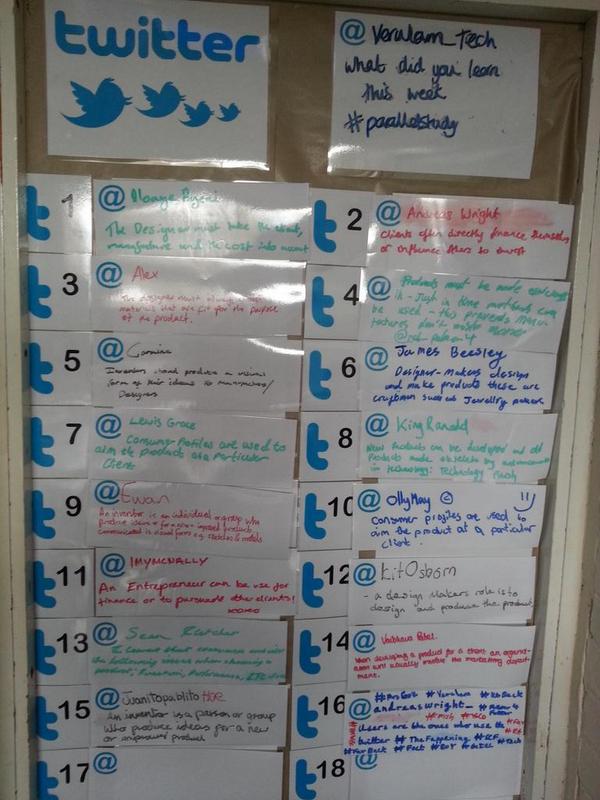 twitter
@ Verulam_Tech
what did you learn
this week
#parallelstudy
1
@
The Designer must take the client,
manufacture and the cost into
2
@ Andreas Wright
Clients often directly finance themselves
or influence others to invest
3
@ Alex
The designer must always
materials that are fit for the purpose
of the product.
4
@ Products must be made
- Just in time methods can
be used - this prevents
don't waste money
5
@
Inventors produce a visual
form of their ideas to Manufacturers/
Designers
6
@ James Beesley
Designer-makers design
and make products these are
craftsmen such as Jewellry makers
7
@ Lewis Grace
Consumer Profiles are used to
aim the products at a Particular
Client
8
@ King Ranald
New Products can be developed and old
Products made obsolete by
in technology: Technology Push
9
@ Ewan
An inventor is an individual or group who
produce ideas for a new or improved products
communicated in visual forms eg sketches & models
10
@ OllyMay
Consumer profiles are used to
aim the product at a particular
client.
11
@ IMYMCNALLY
An Entrepreneur can be use for
finance or to persuade other clients!
xoxo
12
@ KitOsborn
- a design Makers role is to
design and produce the product
13
@ Sean
the following when choosing a
product; Function, Performance, ETC
14
@ Vaibhava Patel
When developing a product for a client an organi-
sation will usually involve the marketing depart-
ment.
15
@ Juanitopablito
An inventor is a person or group
who produce ideas for a new
or improved product
16
@ #Verulam
andreaswright_
Users are the ones who use the
twitter # The Fappening
17
@
18
@